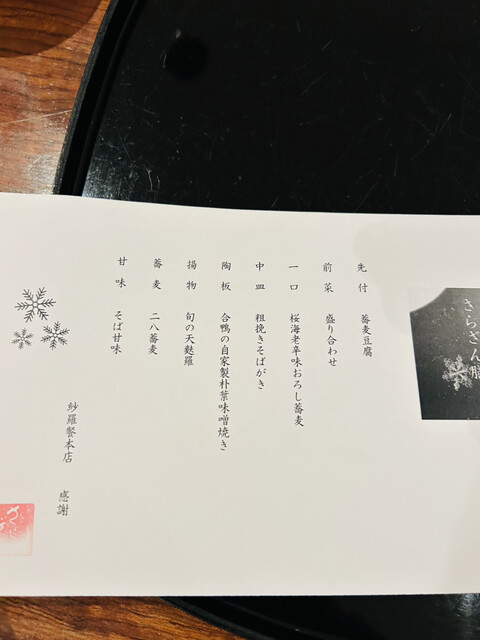 さらざん膳
先付 蕎麦豆腐
前菜 盛り合わせ
一口 桜海老辛味おろし蕎麦
中皿 粗挽きそばがき
陶板 合鴨の自家製朴葉味噌焼き
揚物 旬の天麩羅
蕎麦 二八蕎麦
甘味 そば甘味
紗羅餐本店 感謝